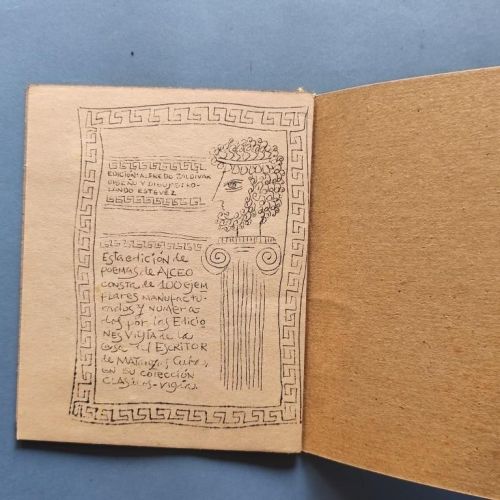 EDICIÓN: ALFREDO ZALDIVAR
DISEÑO Y DIBUJO: RO-
LANDO ESTEVEZ
Esta edición de
POEMAS de ALCEO
CONSTA de 100 ejem
PLARES MANUFACTU-
rados y NUMERA
dos por las Edicio
NES VIGÍA de la
Casa del ESCRITOR
de MATANZAS, Cuba,
EN SU COLECCIÓN
CLÁSICOS-Vigía.